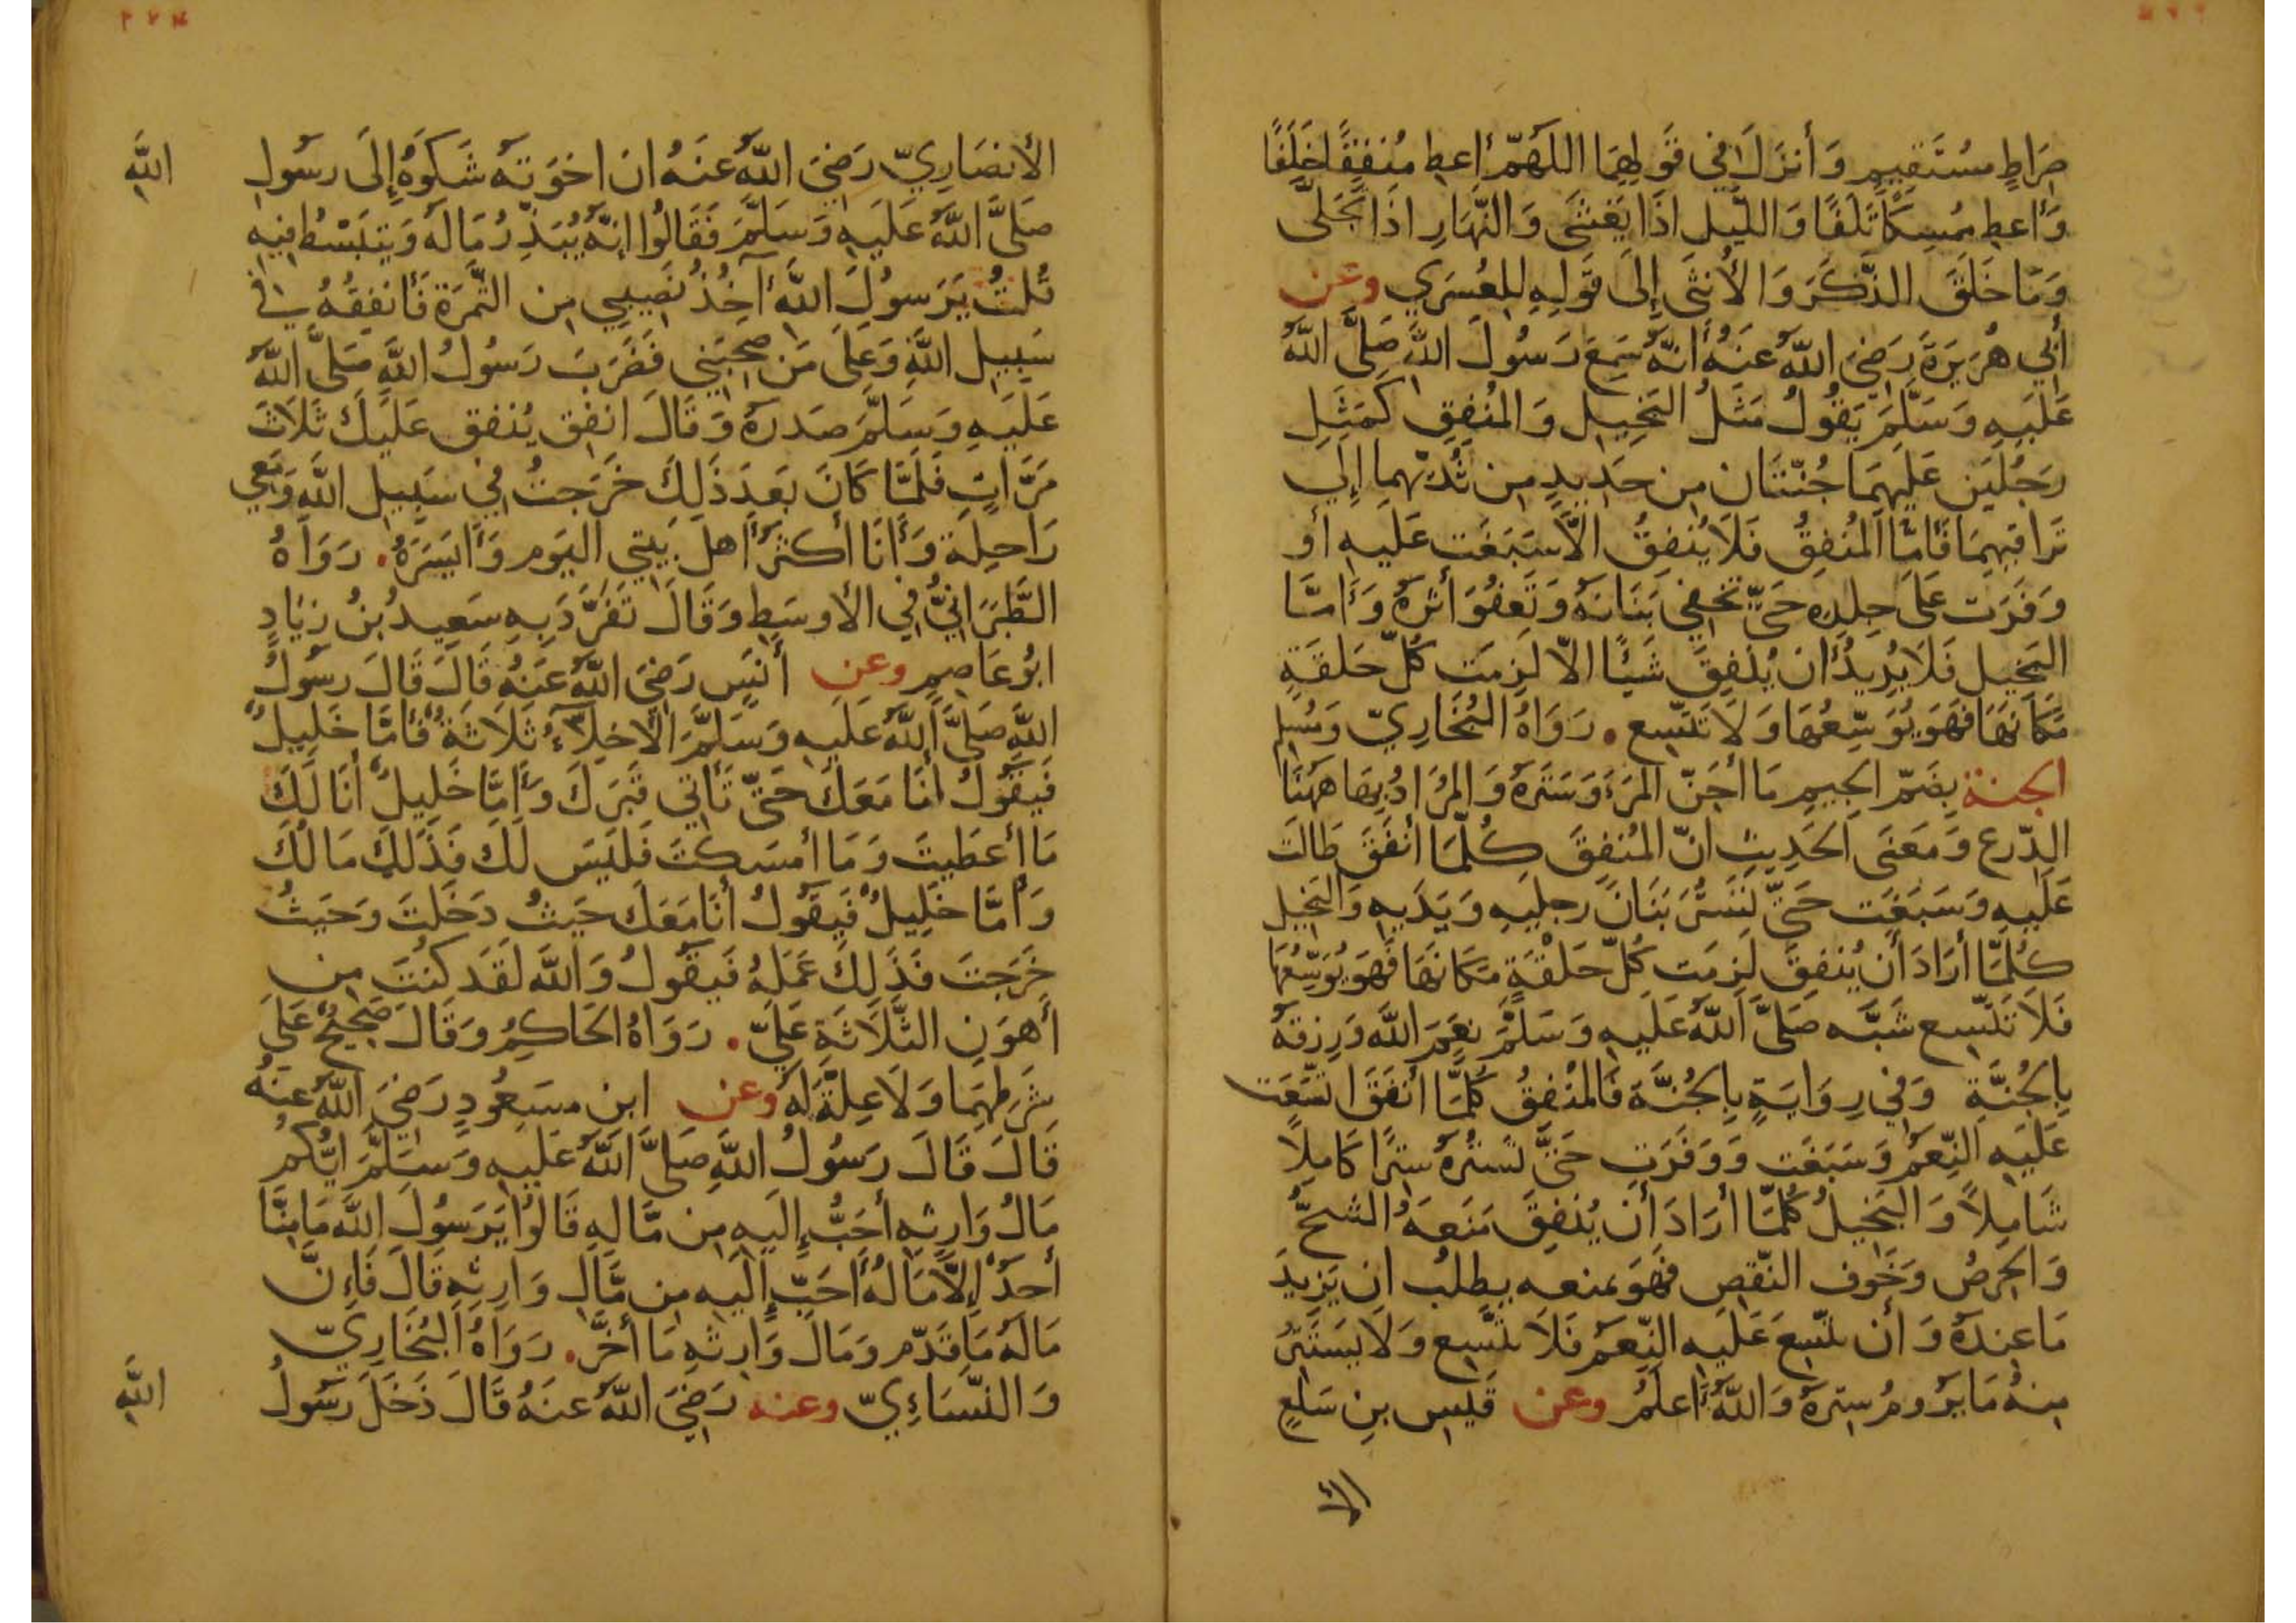 صِرَاطٍ مسُتَقِيمٍ وَأنزَلَ فِي قَولِهِمَا اللَهُمّ أعطِ مُنفِقًا خَلَفًا
وَأعطِ مُمسِكًا تَلَفًا وَاللّيلِ اذَا يَغشَى وَالنّهَارِ اذَا تَجَلّى
وَمَا خَلَقَ الذّكَرَ وَالأنثَى إلَى قَولِهِ لِلعُسرَي وعن
أبِي هُرَيرَةَ رَضِيَ اللّهُ عَنهُ أنّهُ سَمِعَ رَسُولَ اللّهِ صَلَّى اللّهُ
عَلَيهِ وَسَلَّمَ يَقُولُ مَثَلُ البَخِيلِ وَالمُنفِقِ كَمَثَلِ
رَجُلَينِ عَلَيهِمَا جُنّتَانِ مِن حَدِيدٍ مِن ثُدِيّهِمَا إلَي
تَرَاقِيهِمَا فَأمّا المُنفِقُ فَلَا يُنفِقُ الاّ سَبَغَت عَلَيهِ أو
وَفَرَت عَلَى جِلدِهِ حَتّي تخفِي بَنَانَهُ وَتَعفُوَ أثَرَهُ وَأمّا
البَخِيلِ فَلَا يُرِيدُ أن يُنفِقَ شَيئًا الاّ لَزِمَت كُلّ حَلقَةٍ
مَكَانَهَا فَهوَ يُوَسّعُهَا وَلَا تَتّسِع . رَوَاهُ البُخَارِيّ وَمُسلِم
الجنة بِضَمّ الجِيمِ مَا أجَنّ المَرءَ وَسَتَرَهُ وَالمُرَادُ بِهَا هَهُنَا
الدّرع وَمَعنَى الحَدِيثِ انّ المُنفِقَ كُلّمَا أنفَقَ طَالَت
عَلَيهِ وَسَبَغَت حَتّي تَستُرَ بَنَانَ رِجلَيهِ وَيَدَيهِ وَالبَخِيل
كُلّمَا أرَادَ أن يُنفِقَ لَزِمَت كُلّ حَلقَةٍ مَكَانَهَا فَهوَ يُوَسّعُهَا
فَلَا تَتّسِع شَبّه صَلَّى اللّهُ عَلَيهِ وَسَلَّمَ نِعَمَ اللّهِ وَرِزقَهُ
بِالجُنَّةِ وَفِي رِوَايَةٍ بِالجُنَّةَ فَالمُنفِقُ كُلّمَا أنفَقَ اتسَعَت
عَلَيهِ النّعَمُ وَسَبَغَت وَوَفَرَت حَتّى تَستُرَهُ سِترًا كَامِلاً
شَامِلاً وَالبَخِيلُ كُلّمَا أرَادَ أن يُنفِقَ مَنَعَهُ الشحُّ
وَالحِرصُ وَخَوف النّقصِ فَهوَ بمنعه يطلبُ ان يَزِيدَ
مَا عِندَهُ وَأن تتّسِعَ عَلَيهِ النِّعَمُ فَلَا تتّسِع وَلَا يَستَتر
مِنهُ مَا يَرُومُ سِترَهُ وَاللّهُ أعلَمُ وعن قَيسِ بنِ سَلعٍ
الأ
الأنصَارِيّ رَضِيَ اللّهُ عَنهُ ان اخوَتهُ شَكَوهُ إلَى رَسُولِ الله
صَلَّى اللّهُ عَلَيهِ وَسَلَّمَ فَقَالُوا إنّهُ يُبَذّرُ مَالَهُ وَيَتبَسّطُ فِيهِ
قُلتُ يَرَسُولَ اللّهِ آخُذُ نَصِيبِي مِن الثّمرَةِ فَأنفِقُهُ فِي
سَبِيلِ اللّهِ وَعَلَى مَن صحِبَنِي فَضَرَبَ رَسُولُ اللّهِ صَلَّى اللّهُ
عَلَيهِ وَسَلَّمَ صَدرَهُ وَقَالَ انفِق يُنفق عَلَيكَ ثَلَاثَ
مَرّاتٍ فَلَمّا كَانَ بَعدَ ذَلِكَ خَرَجتُ فِي سَبِيلِ اللّهِ وَمَعِي
رَاحِلَة وَأنَا أكثرُ أهلِ بَيتِي اليَومَ وَأيسَرَهُ . رَوَاهُ
الطّبَرَانِيُّ فِي الأوسَطِ وَقَالَ تَفَرّدَ بِهِ سَعِيدُ بنُ زِيَادٍ
ابُو عَاصِمٍ وعن أنَسٍ رَضِيَ اللّهُ عَنهُ قَالَ قَالَ رَسُولُ
اللّهِ صَلَّى اللّهُ عَلَيهِ وَسَلَّمَ الأخِلاّءُ ثَلَاثَةٌ فَأمّا خَلِيلٌ
فَيَقُولُ أنَا مَعَكَ حَتّي تَأتِي قَبرَكَ وَأمّا خَلِيلٌ أنَا لَكَ
مَا أعطَيتَ وَمَا أمسَكتَ فَلَيسَ لَكَ فَذَلِكَ مَالُكَ
وَأمّا خَلِيلٌ فَيَقُولُ أنَا مَعَكَ حَيثُ دَخَلتَ وَحَيثُ
خَرَجتَ فَذَلِكَ عَمَلهُ فَيَقُولُ وَاللّهِ لَقَد كُنتَ مِن
أهوَنِ الثّلَاثَةِ عَلَيّ . رَوَاهُ الحَاكِمُ وَقَالَ صَحِيحٌ عَلَى
شَرطِهِمَا وَلَا عِلّةَ لَهُ وعن ابن مسَعُودٍ رَضِيَ اللّهُ عَنهُ
قَالَ قَالَ رَسُولُ اللّهِ صَلَّى اللّهُ عَلَيهِ وَسَلَّمَ ايُّكُم
مَالُ وَارِثِهِ أحَبُّ إلَيهِ مِن مَّالِهِ قَالُوا يَرَسُولَ اللّهِ مَا مِنَّا
أحَدٌ إلَّا مَالُهُ أحَبّ إلَيهِ مِن مَّالِ وَارِثِهِ قَالَ فَإنَّ
مَالَهُ مَا قَدّم وَمَالَ وَارِثِهِ مَا أخَّرَ . رَوَاهُ البُخَارِيّ
وَالنّسَاءِيّ وعنه رَضِيَ اللّهُ عَنهُ قَالَ دَخَلَ رَسُولُ الله